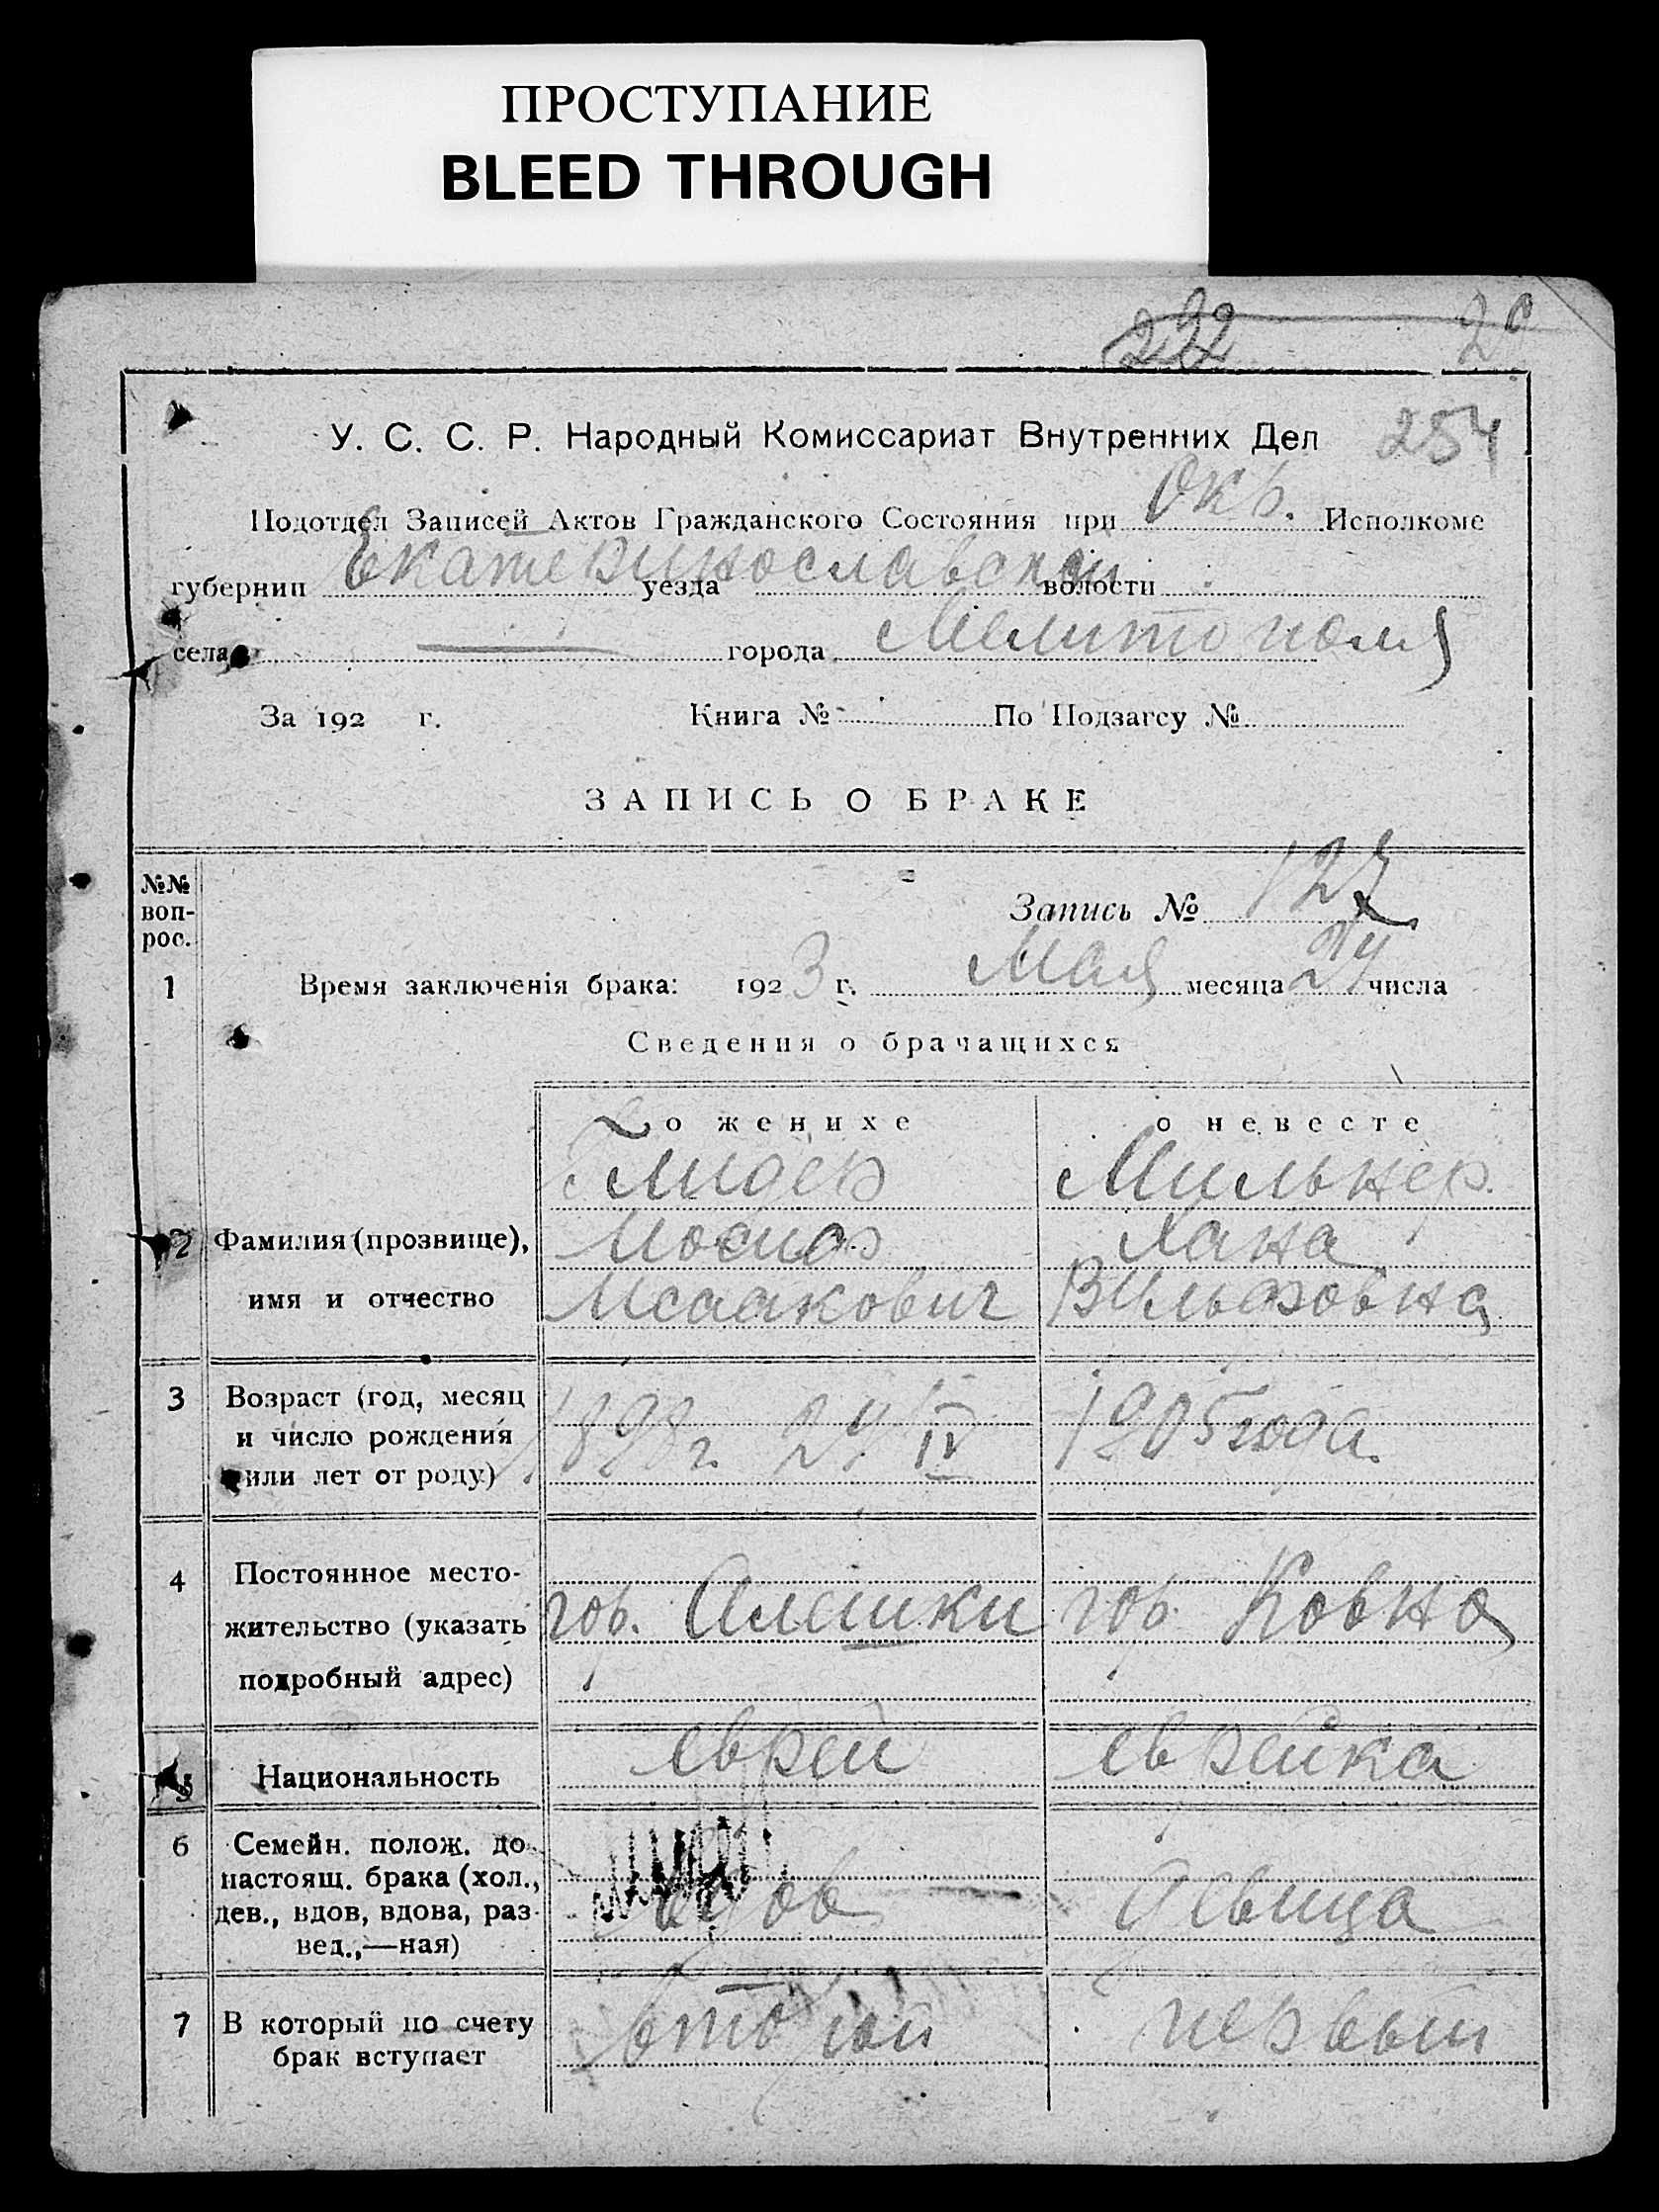 ПРОСТУПАНИЕ
BLEED THROUGH
232 20
У. С. С. Р. Народный Комиссариат Внутренних Дел 254
Подотдел Записей Актов Гражданского Состояния при Окр. Исполкоме
губернии Екатеринославской уезда волости
села — города Мелитополя
За 192 г. Книга № По Подзагсу №
ЗАПИСЬ О БРАКЕ
№№ воп-рос.
Запись № 127
1 Время заключенія брака: 1923 г. Мая месяца 24 числа
Сведения о брачащихся
о женихе о невесте
Мильнер
2 Фамилия (прозвище), Хана
имя и отчество Исаакович Вульфовна
3 Возраст (год, месяц
и число рождения 1898 г. 24 IV 1905 года.
или лет от роду)
4 Постоянное место-
жительство (указать гор. Алешки гор. Ковна
подробный адрес)
5 Национальность еврей еврейка
6 Семейн. полож. до
настоящ. брака (хол.,
дев., вдов, вдова, раз- вдов девица
вед.,—ная)
7 В который по счету второй первый
брак вступает